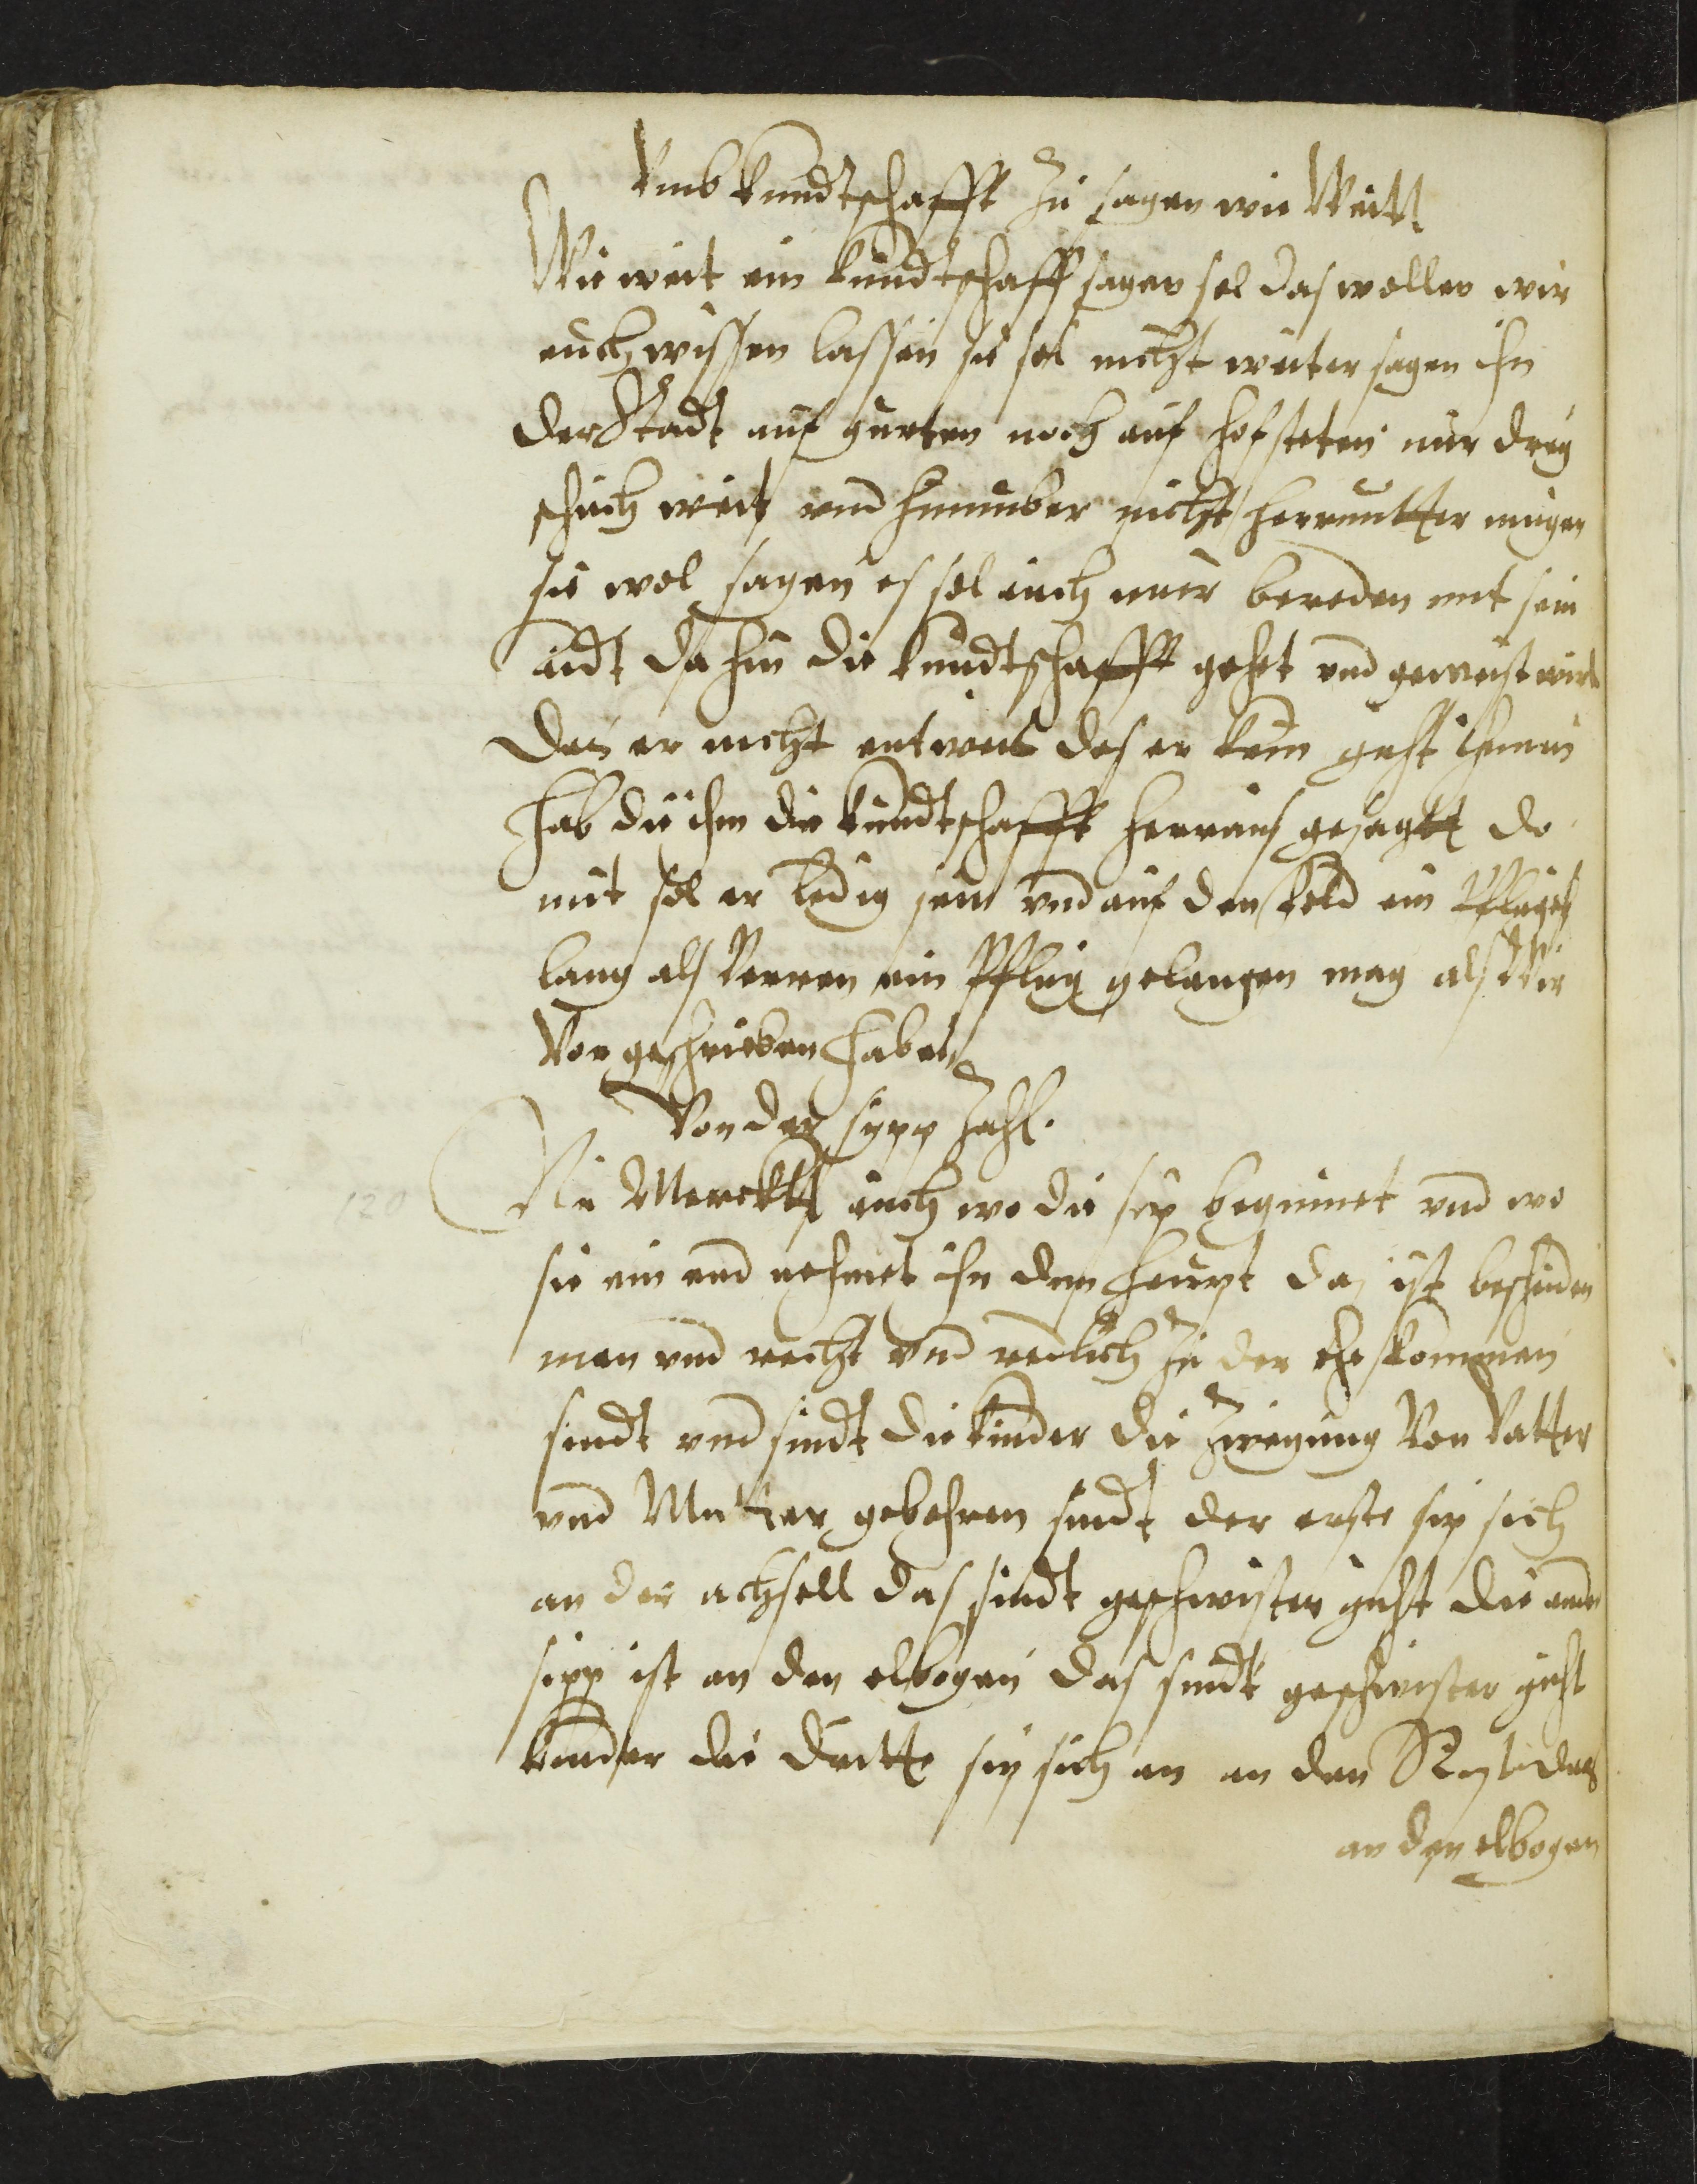 Vmb kundtschafft zu sagen wie Weitt
Wie weit ein kundtschafft sagen sol das wollen wir
euch wissen lassen sie sol nicht weiter sagen ihn
der Stadt auf gurten noch auf hofsteten nur drey
schuch weit vnd hinnuber nicht herrunter mügen
sie wol sagen es sol auch nuer bereden mit sein
aidt da hin die kundtschafft gehet vnd geweist wirt
das er nicht entweis das er kein gist ihnnen
hab die ihm die kundtschafft herraus gesagtt do
mit sol er ledig sein vnd auf den feld ein Pflugs
lang als Verren ein Pflug gelangen mag als Wir
Vor geschrieben haben
Von der sypp Zahl.
120 Nu Merckht auch wo die sip beginnet vnd wo
sie ein end nehmet ihn dem haupt da ist bescheiden
man vnd recht vnd redlich zu der ehe kommen
sindt vnd sindt die kinder die Von Vatter
vnd Mutter gebohren sindt der erste sip sich
an der achsell das sindt geschwister gist die ander
sipp ist an den elbogen das sindt geschwister gist
kinder die dritte sip sich an an den das
an den elbogen